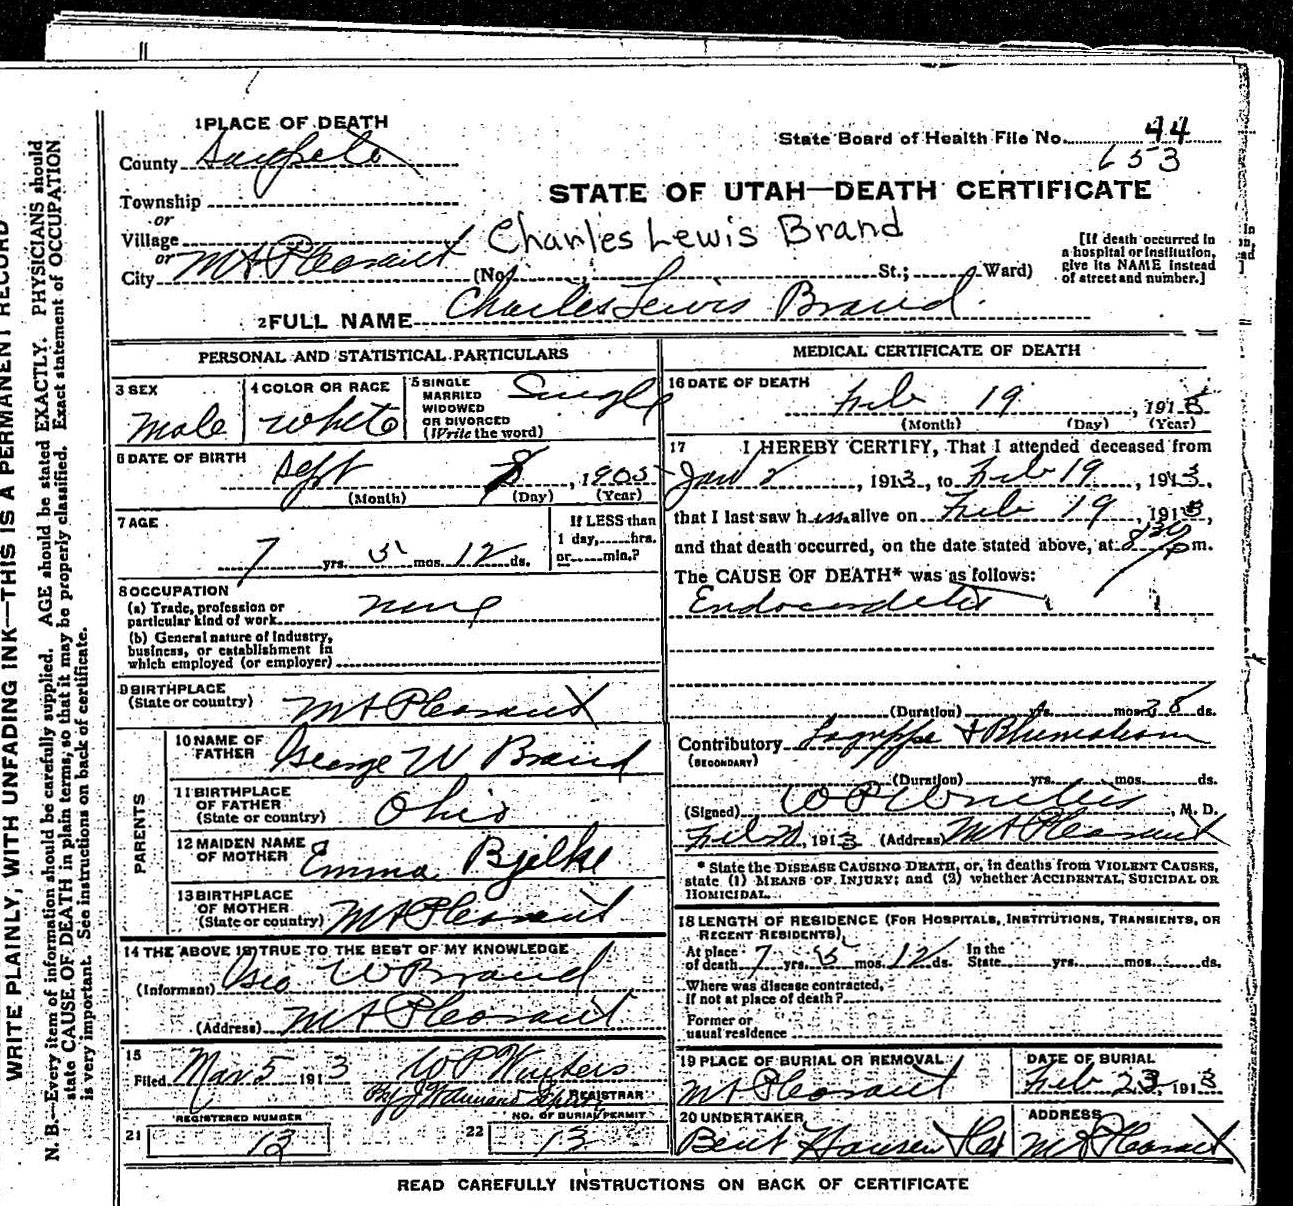 WRITE PLAINLY, WITH UNFADING INK—THIS IS A PERMANENT RECORD
N. B.—Every item of information should be carefully supplied. AGE should be stated EXACTLY. PHYSICIANS should
state CAUSE OF DEATH in plain terms, so that it may be properly classified. Exact statement of OCCUPATION
is very important. See instructions on back of certificate.
1 PLACE OF DEATH
County Sanpete
Township
or
Village
or
City Mt Pleasant
State Board of Health File No. 44
653
STATE OF UTAH—DEATH CERTIFICATE
Charles Lewis Brand
(No. St.; Ward)
[If death occurred in
a hospital or institution,
give its NAME instead
of street and number.]
2 FULL NAME Charles Lewis Brand.
PERSONAL AND STATISTICAL PARTICULARS
3 SEX
Male
4 COLOR OR RACE
White
5 SINGLE
MARRIED
WIDOWED
OR DIVORCED
(Write the word)
Single
6 DATE OF BIRTH
Sept 8, 1905
(Month) (Day) (Year)
7 AGE
7 yrs. 5 mos. 12 ds.
If LESS than
1 day,.....hrs.
or.....min.?
8 OCCUPATION
(a) Trade, profession or
particular kind of work none
(b) General nature of industry,
business, or establishment in
which employed (or employer)
9 BIRTHPLACE
(State or country) Mt Pleasant
PARENTS
10 NAME OF
FATHER George W Brand
11 BIRTHPLACE
OF FATHER
(State or country) Ohio
12 MAIDEN NAME
OF MOTHER Emma Bjelke
13 BIRTHPLACE
OF MOTHER
(State or country) Mt Pleasant
14 THE ABOVE IS TRUE TO THE BEST OF MY KNOWLEDGE
(Informant) Geo W Brand
(Address) Mt Pleasant
15
Filed Mar 5 1913 W P Winters
REGISTRAR
21 REGISTERED NUMBER
13
22 NO. OF BURIAL PERMIT
13
MEDICAL CERTIFICATE OF DEATH
16 DATE OF DEATH
Feb 19, 1913
(Month) (Day) (Year)
17 I HEREBY CERTIFY, That I attended deceased from
Jan 2, 1913, to Feb 19, 1913,
that I last saw h alive on Feb 19, 1913,
and that death occurred, on the date stated above, at 830 pm.
The CAUSE OF DEATH* was as follows:
Endocarditis
(Duration) yrs. mos. 28 ds.
Contributory Lagrippe & Rhumatism
(SECONDARY)
(Duration) yrs. mos. ds.
(Signed) W P Winters, M. D.
Feb, 1913 (Address) Mt Pleasant
* State the DISEASE CAUSING DEATH, or, in deaths from VIOLENT CAUSES,
state (1) MEANS OF INJURY; and (2) whether ACCIDENTAL, SUICIDAL OR
HOMICIDAL.
18 LENGTH OF RESIDENCE (FOR HOSPITALS, INSTITUTIONS, TRANSIENTS, OR
RECENT RESIDENTS)
At place
of death 7 yrs. 5 mos. 12 ds. In the
State yrs. mos. ds.
Where was disease contracted,
if not at place of death?
Former or
usual residence
19 PLACE OF BURIAL OR REMOVAL
Mt Pleasant
DATE OF BURIAL
Feb 23, 1913
20 UNDERTAKER
Bent Hansen
ADDRESS
Mt Pleasant
READ CAREFULLY INSTRUCTIONS ON BACK OF CERTIFICATE